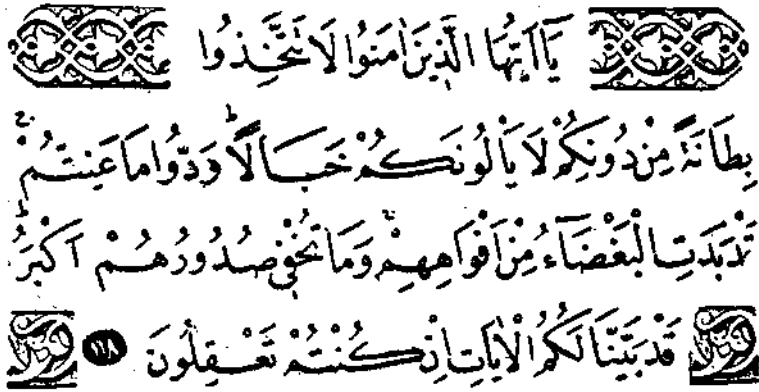 يَٓا اَيُّهَا الَّذ۪ينَ اٰمَنُوا لَا تَتَّخِذُوا
بِطَانَةً مِنْ دُونِكُمْ لَا يَأْلُونَكُمْ خَبَالًاۜ وَدُّوا مَا عَنِتُّمْۚ
قَدْ بَدَتِ الْبَغْضَٓاءُ مِنْ اَفْوَاهِهِمْۚ وَمَا تُخْف۪ي صُدُورُهُمْ اَكْبَرُۜ
قَدْ بَيَّنَّا لَكُمُ الْاٰيَاتِ اِنْ كُنْتُمْ تَعْقِلُونَ ﴿١١٨﴾